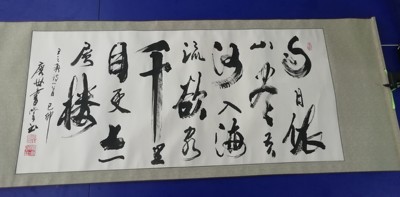 白日依
山尽黄
河入海
流欲穷
千里
目更上一
层楼